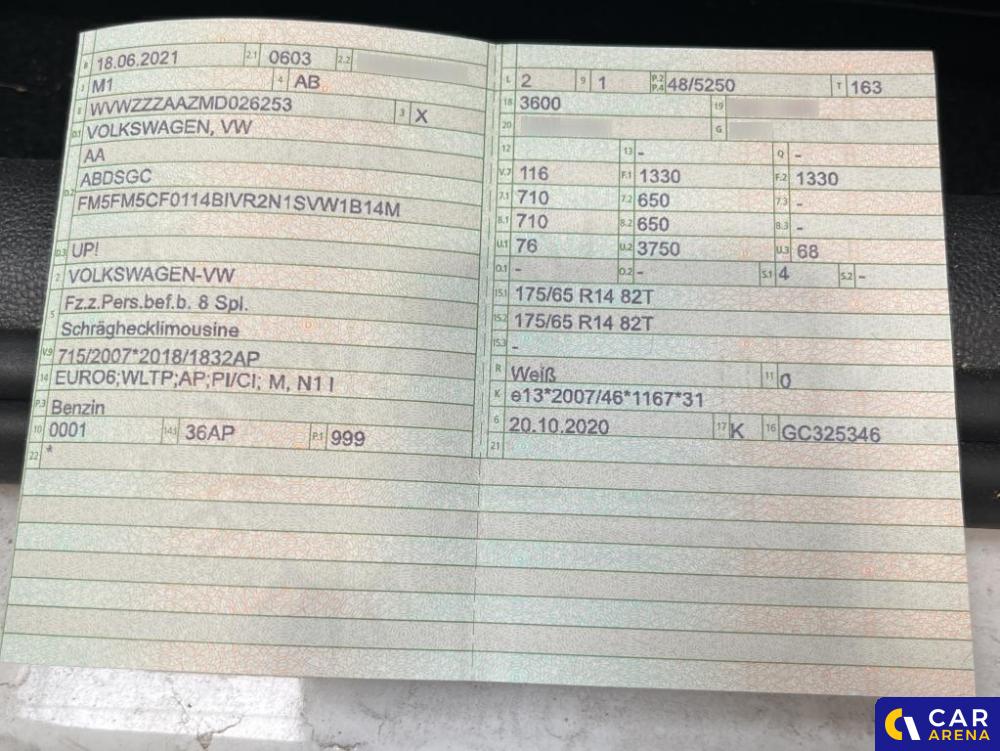 B 18.06.2021 2.1 0603 2.2
J M1 4 AB
E WVWZZZAAZMD026253 3 X
D.1 VOLKSWAGEN, VW
AA
D.2 ABDSGC
FM5FM5CF0114BIVR2N1SVW1B14M
D.3 UP!
2 VOLKSWAGEN-VW
5 Fz.z.Pers.bef.b. 8 Spl.
Schräghecklimousine
V.9 715/2007*2018/1832AP
14 EURO6;WLTP;AP;PI/CI; M, N1 I
P.3 Benzin
10 0001 14.1 36AP P.1 999
22 *
L 2 9 1 P.2 P.4 48/5250 T 163
18 3600 19
20 G
12 13 - Q -
V.7 116 F.1 1330 F.2 1330
7.1 710 7.2 650 7.3 -
8.1 710 8.2 650 8.3 -
U.1 76 U.2 3750 U.3 68
O.1 - O.2 - S.1 4 S.2 -
15.1 175/65 R14 82T
15.2 175/65 R14 82T
15.3 -
R Weiß 11 0
K e13*2007/46*1167*31
6 20.10.2020 17 K 16 GC325346
21
CAR
ARENA